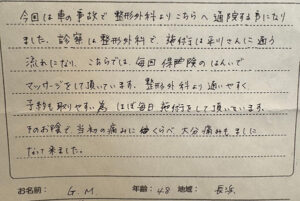 今回は車の事故で整形外科よりこちらへ通院する事になり
ました。診察は整形外科で、施術は平川さんに通う
流れになり、こちらでは、毎回保険のはんいで
マッサージをして頂いています。整形外科より通いやすく
予約も取りやすい為 ほぼ毎日施術をして頂いています。
そのお陰で、当初の痛みにくらべ大分痛みもましに
なって来ました。
お名前: G.M 年齢: 48 地域: 長浜